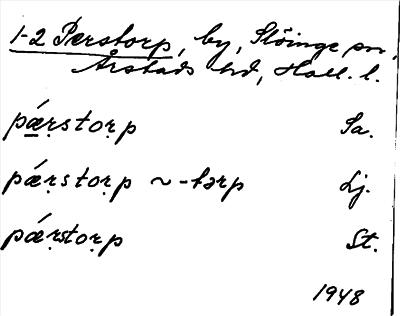 1-2 Perstorp, by, Slöinge sn,
Årstads hd, Hall. l.
pǽ̠ṛstoṛp Sa.
pǽṛstoṛp ~ -tərp Lj.
pǽṛstoṛp St.
1948